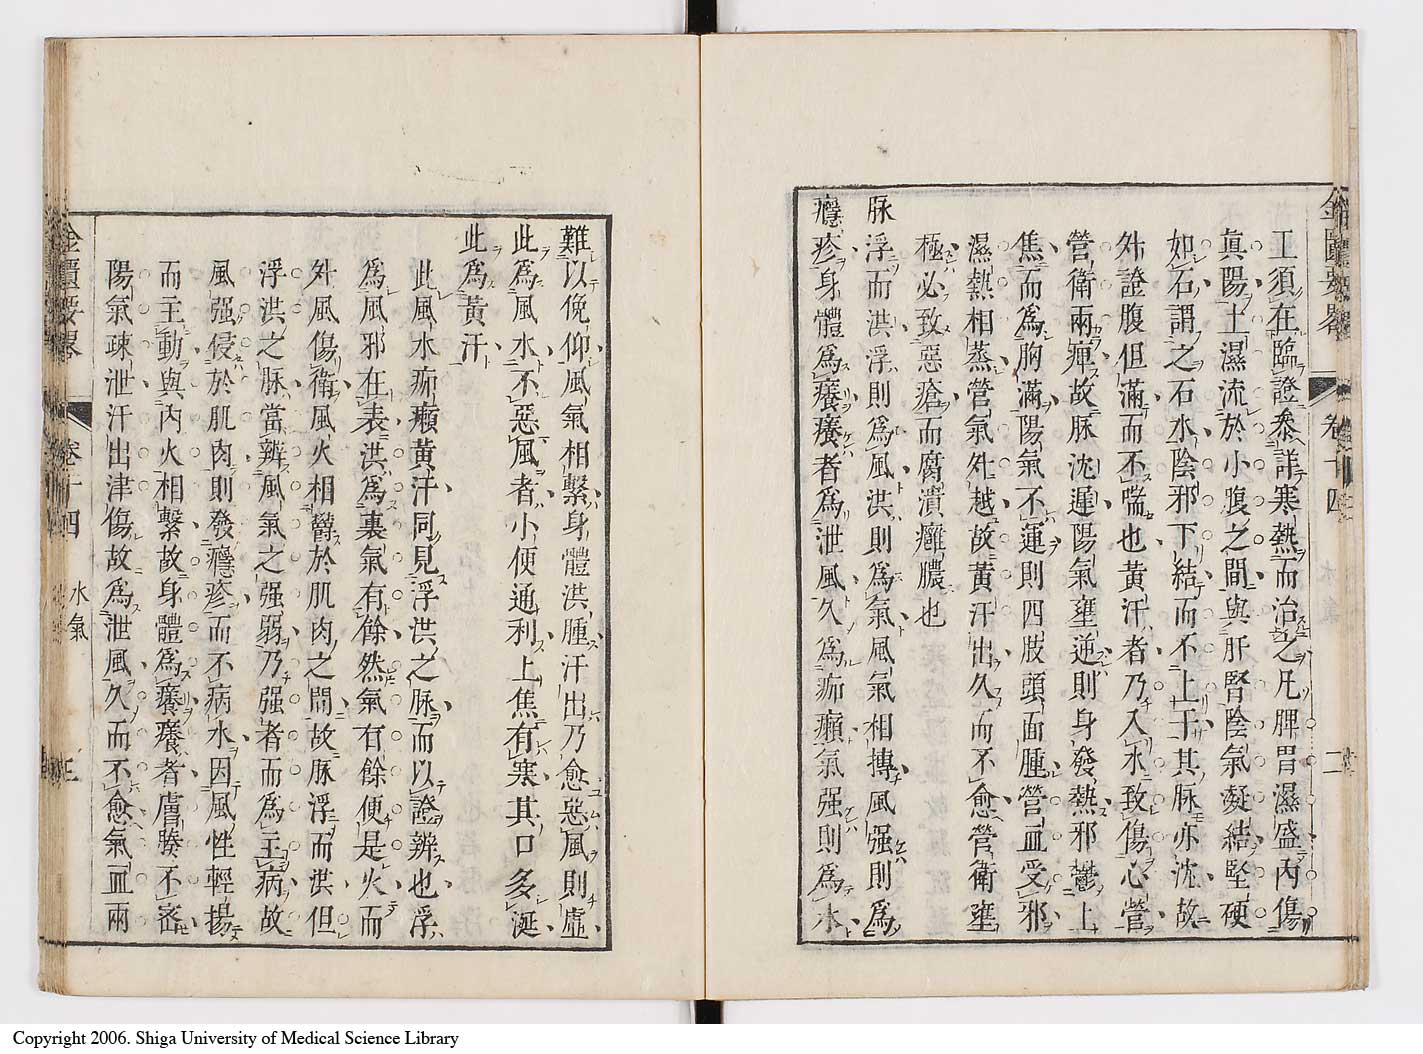 金匱要畧 卷十四 二
工須在臨證參詳寒熱而治之凡脾胃濕盛內傷
眞陽土濕流於小腹之間與肝腎陰氣凝結堅硬
如石謂之石水陰邪下結而不上于其脉亦沈故
外證腹但滿而不喘也黃汗者乃入水致傷心營
營衛兩痺故脉沈遲陽氣壅逆則身發熱邪鬱上
焦而爲胸滿陽氣不運則四肢頭面腫營血受邪
濕熱相蒸營氣外越故黃汗出久而不愈營衛壅
極必致惡瘡而腐潰癰膿也
脉浮而洪浮則爲風洪則爲氣風氣相摶風强則爲
癮疹身體爲癢癢者爲泄風久爲痂癩氣强則爲水
難以俛仰風氣相繫身體洪腫汗出乃愈惡風則虛
此爲風水不惡風者小便通利上焦有寒其口多涎
此爲黃汗
此風水痂癩黃汗同見浮洪之脉而以證辨也浮
爲風邪在表洪爲裏氣有餘然氣有餘便是火而
外風傷衛風火相鬱於肌肉之間故脉浮而洪但
浮洪之脉當辨風氣之强弱乃强者而爲主病故
風强侵於肌肉則發癮疹而不病水因風性輕揚
而主動與內火相繫故身體爲癢癢者膚腠不密
陽氣疎泄汗出津傷故爲泄風久而不愈氣血兩
金匱要畧 卷十四 水氣 三
Copyright 2006. Shiga University of Medical Science Library